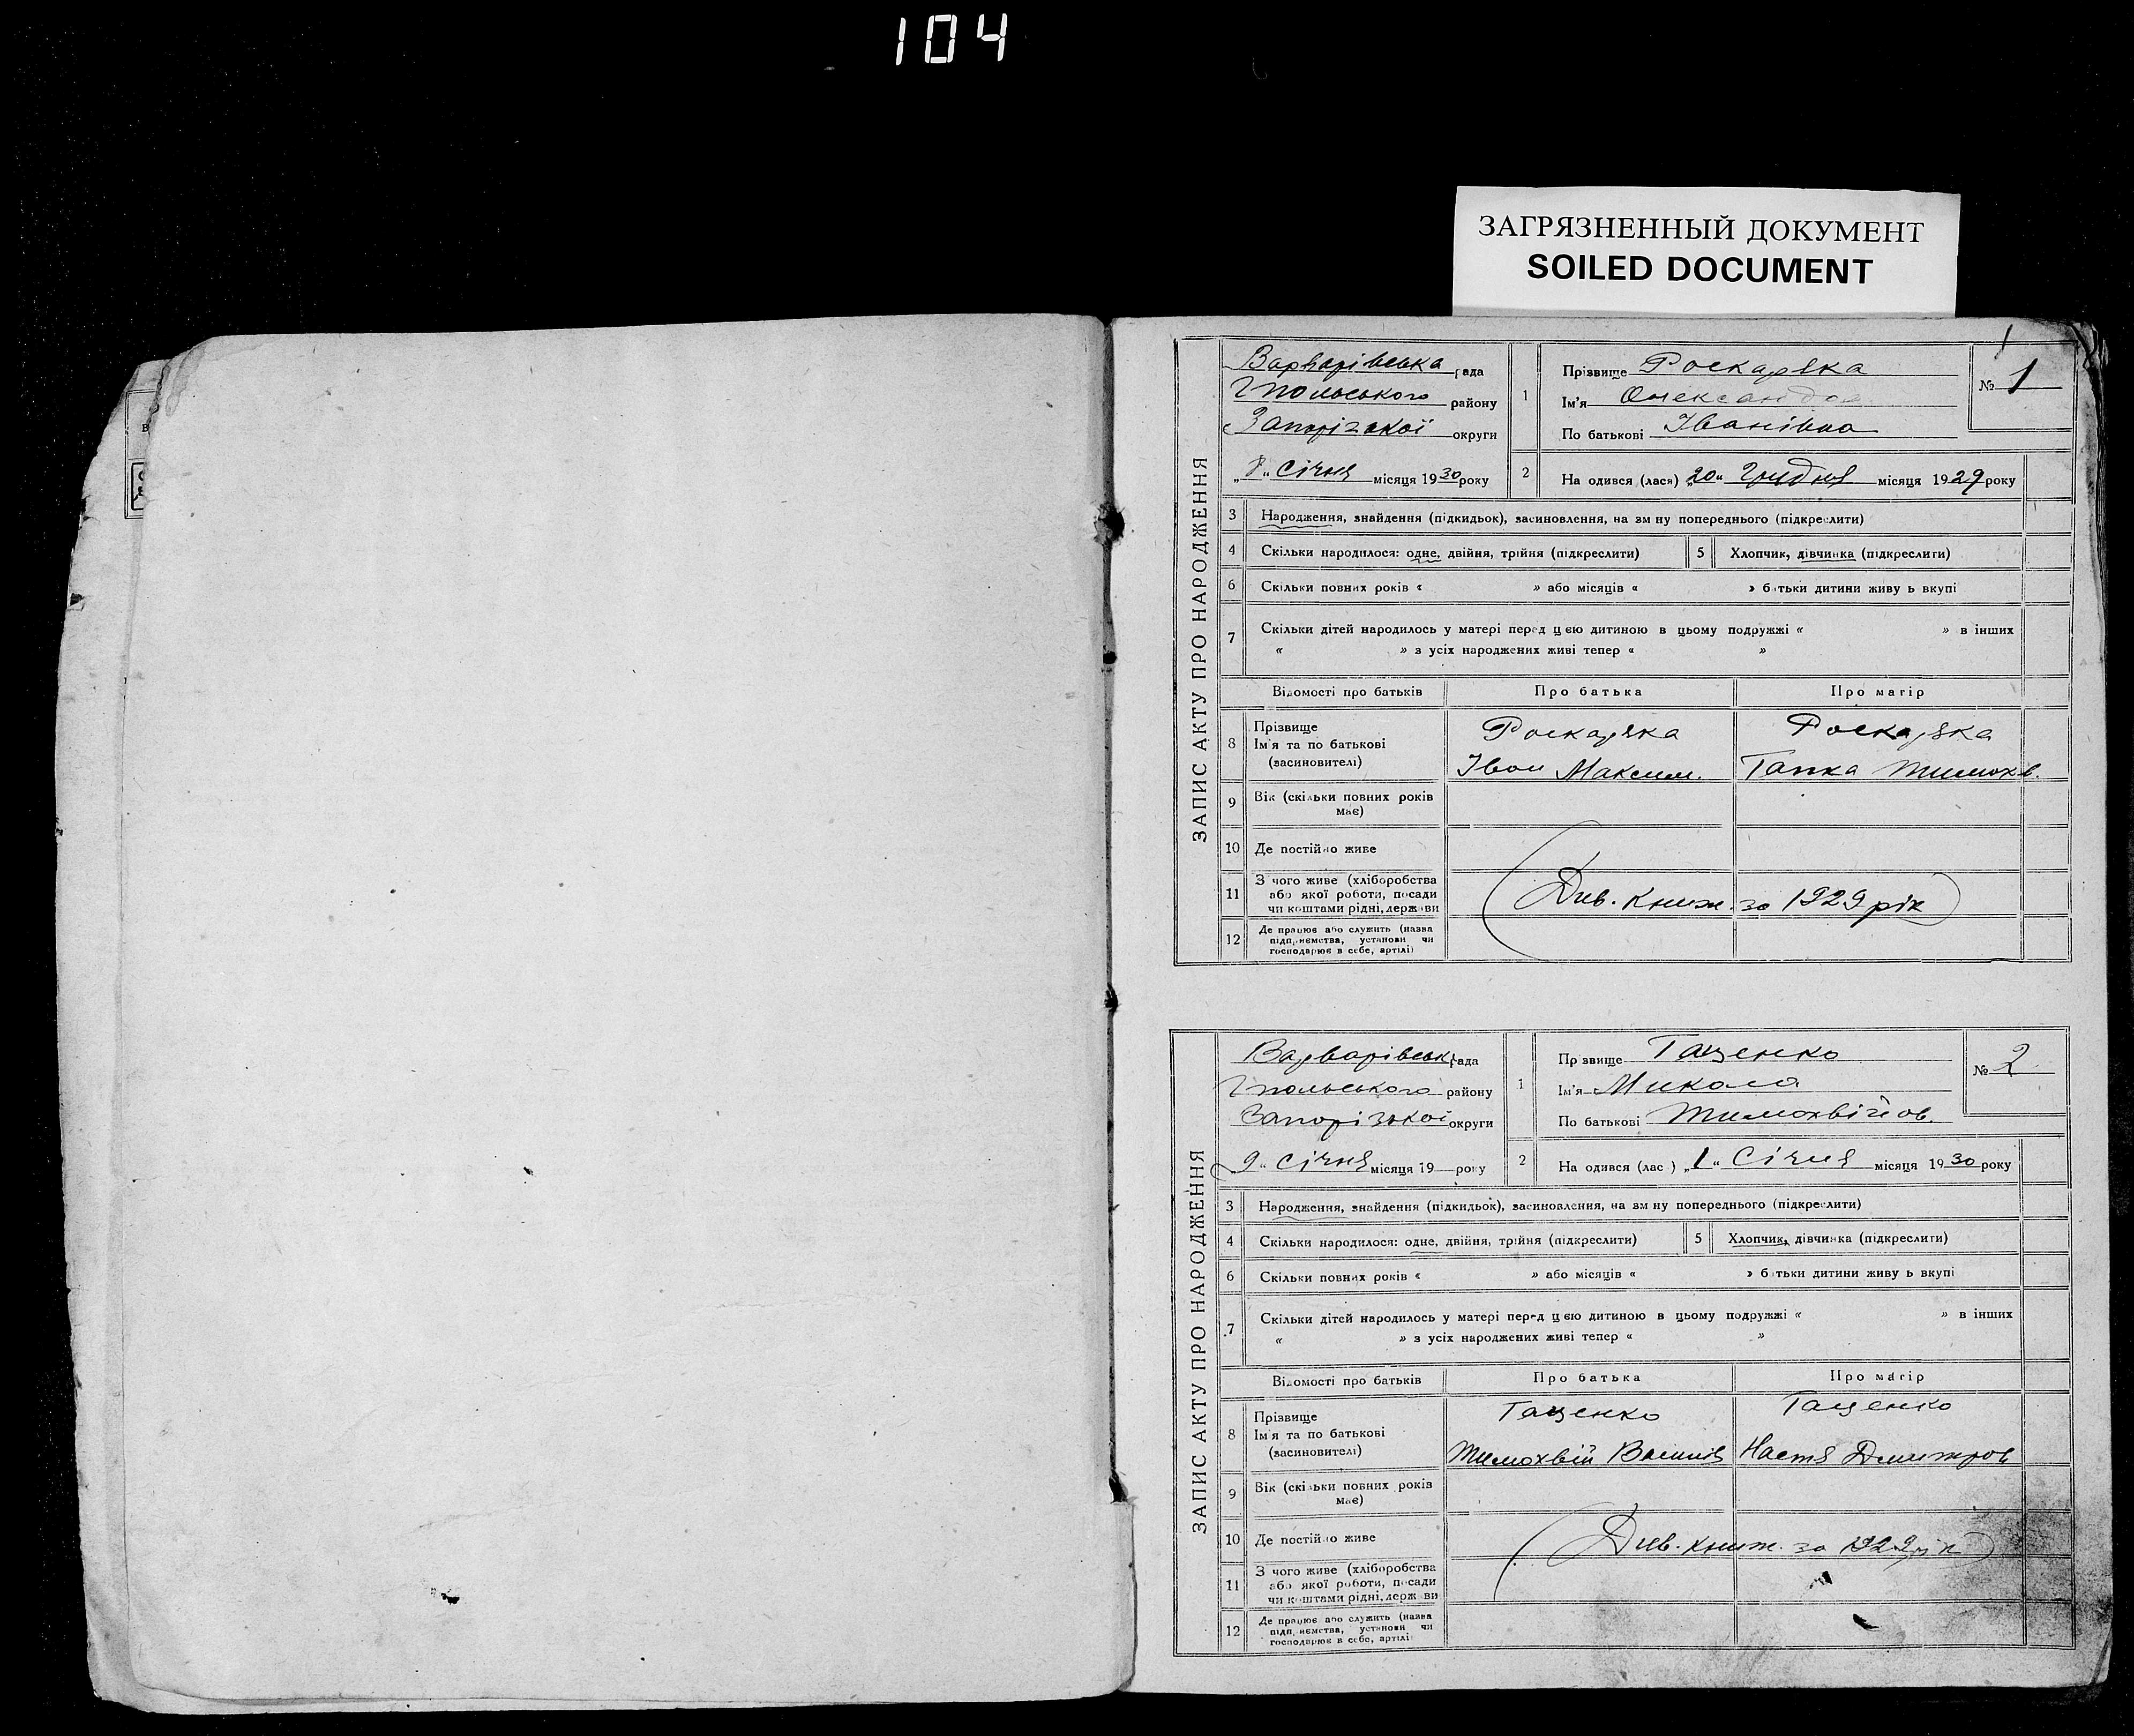 104
ЗАГРЯЗНЕННЫЙ ДОКУМЕНТ
SOILED DOCUMENT
1
ЗАПИС АКТУ ПРО НАРОДЖЕННЯ
Варварівська рада
Гпольського району
Запорізької округи
„8“ Січня місяця 1930 року
1
Прізвище Роскаряка
Ім'я Олександра
По батькові Іванівна
№ 1
2 На одився (лася) „20“ Грудня місяця 1929 року
3 Народження, знайдення (підкидьок), засиновлення, на зм ну попереднього (підкреслити)
4 Скільки народилося: одне, двійня, трійня (підкреслити) 5 Хлопчик, дівчинка (підкреслити)
6 Скільки повних років « » або місяців « » батьки дитини живу ь вкупі
7 Скільки дітей народилось у матері перед цією дитиною в цьому подружжі « » в інших
« » з усіх народжених живі тепер « »
Відомості про батьків Про батька Про матір
8 Прізвище
Ім'я та по батькові
(засиновителі)
Роскаряка
Іван Максим.
Роскаряка
Гапка Тимохв.
9 Вік (скільки повних років
має)
10 Де постійно живе
11 З чого живе (хліборобства
або якої роботи, посади
чи коштами рідні, держави
(Див. книж. за 1929 рік)
12 Де працює або служить (назва
підприємства, установи чи
господарює в себе, артілі)
ЗАПИС АКТУ ПРО НАРОДЖЕННЯ
Варварівськ рада
Гпольського району
Запорізької округи
„9“ Січня місяця 19 року
1
Пр звище Гащенко
Ім'я Микола
По батькові Тимохвійов.
№ 2
2 На одився (лас ) „1“ Січня місяця 1930 року
3 Народження, знайдення (підкидьок), засиновлення, на зм ну попереднього (підкреслити)
4 Скільки народилося: одне, двійня, трійня (підкреслити) 5 Хлопчик, дівчинка (підкреслити)
6 Скільки повних років « » або місяців « » батьки дитини живу ь вкупі
7 Скільки дітей народилось у матері перед цією дитиною в цьому подружжі « » в інших
« » з усіх народжених живі тепер « »
Відомості про батьків Про батька Про матір
8 Прізвище
Ім'я та по батькові
(засиновителі)
Гащенко
Тимохвій Василів
Гащенко
Настя Дмитров
9 Вік (скільки повних років
має)
10 Де постійно живе
(Див. книж. за 1929 рік)
11 З чого живе (хліборобства
або якої роботи, посади
чи коштами рідні, держави
12 Де працює або служить (назва
підприємства, установи чи
господарює в себе, артілі